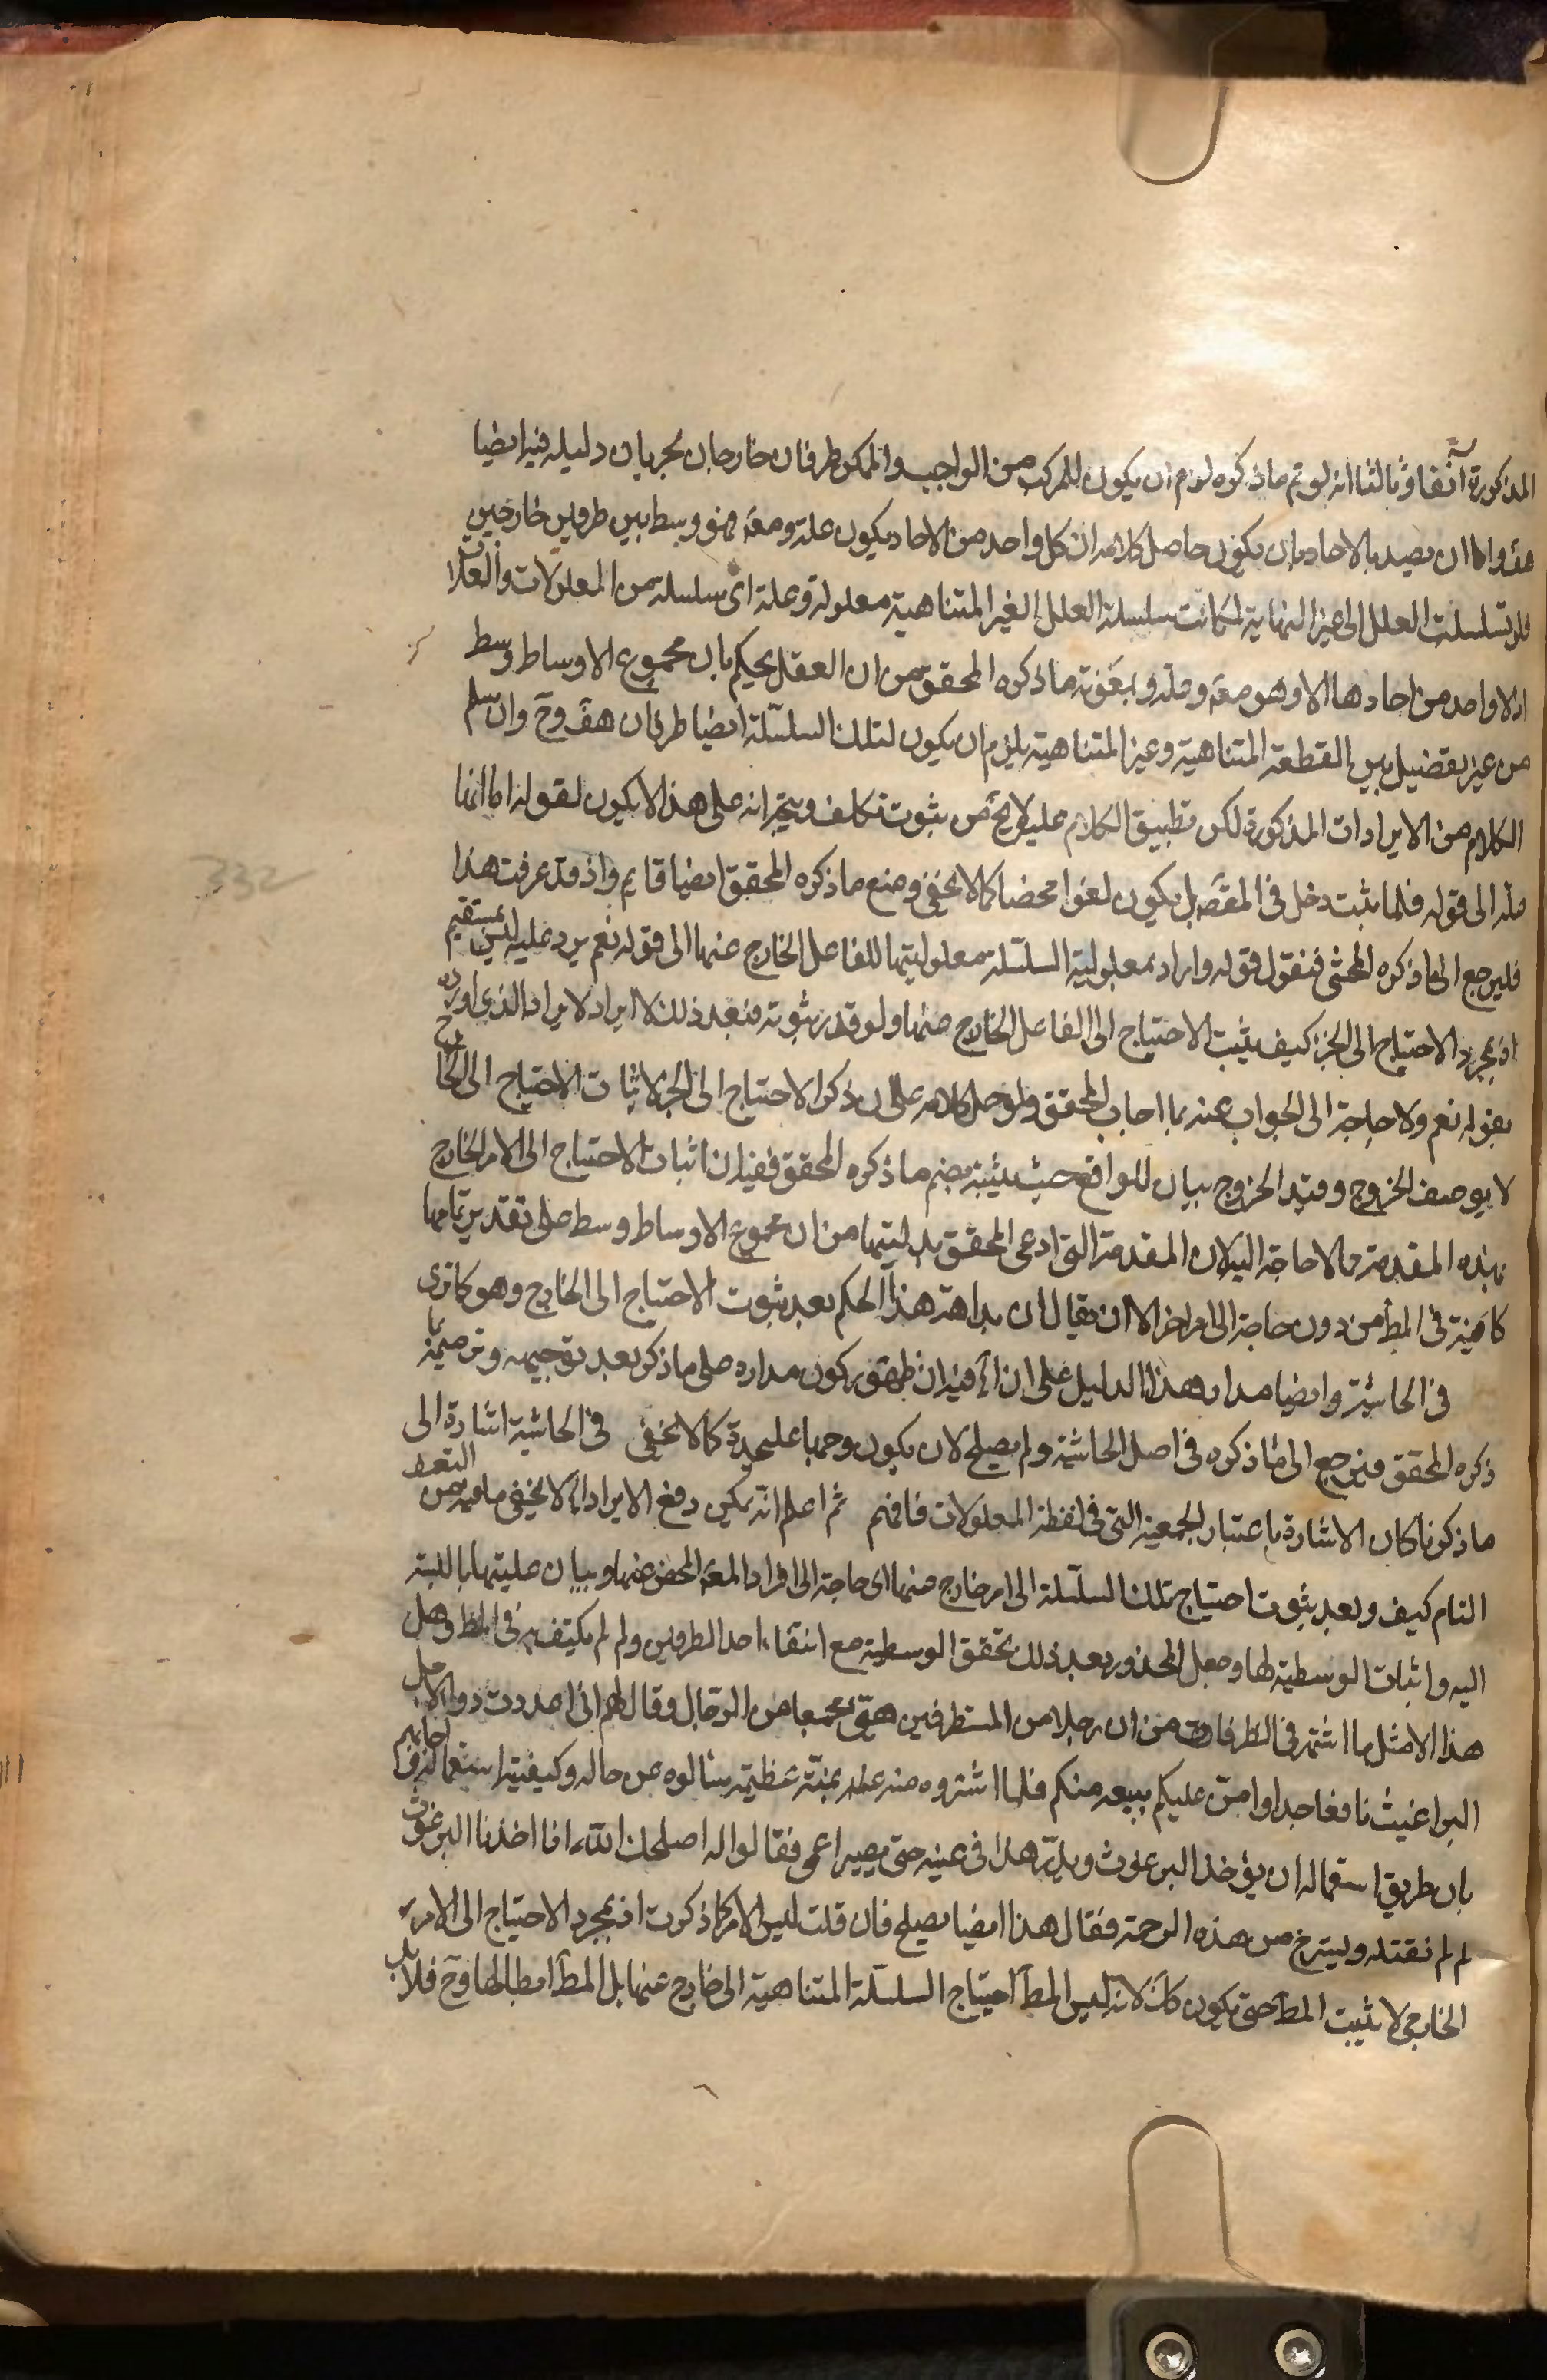 المذكورة آنفا وثالثا انه لو تم ماذكره لزم ان يكون للمركب من الواجب والممكن طرفان خارجان لجريان دليله فيه ايضا
هف واما ان يصيد بالاحاد بان يكون حاصل كلامه ان كل واحد من الاحاد يكون علة ومعه فهو وسط بين طرفين خارجين
فلو تسلسلت العلل الى غير النهاية لكانت سلسلة العلل الغير المتناهية معلولة وعلة اى سلسلة من المعلولات والعلل
اذ لا واحد من احادها الا وهو معه وعلة وبمعونة ما ذكره المحقق من ان العقل يحكم بان مجموع الاوساط وسط
من غير تفضيل بين القطعة المتناهية وغير المتناهية يلزم ان يكون لتلك السلسلة ايضا طرفان هف وح وان سلم
الكلام من الايرادات المذكورة لكن تطبيق الكلام عليه لا يخ من ثبوت تكلف ويتجه انه على هذا لا يكون لقوله اما انها
علة الى قوله فلما ثبت دخل فى المقصد بل يكون لغوا محضا كما لا يخفى ومنع ما ذكره المحقق ايضا قايم واذ قد عرفت هذا
فليرجع الى ما ذكره المحشى فنقول قوله واراد بمعلولية السلسلة معلوليتها للفاعل الخارج عنها الى قوله نعم يرد عليه ليس بمستقيم
اذ بمجرد الاحتياج الى الجزء كيف يثبت الاحتياج الى الفاعل الخارج عنها ولو قدر ثبوته فبعد ذلك لا ايراد لايراد الذى اورده
بقوله نعم ولا حاجة الى الجواب عنه بما اجاب المحقق ولو حمل كلامه على ان ذكر الاحتياج الى الجزء لاثبات الاحتياج الى الخارج
لا بوصف الخروج وقيد الخروج بيان للواقع حيث يثبته بضم ما ذكره المحقق ففيه ان اثبات الاحتياج الى الامر الخارج
بهذه المقدمة مما لا حاجة اليه لان المقدمة التى ادعى المحقق بداهتها من ان مجموع الاوساط وسط على تقدير تمامها
كافية فى المط من دون حاجة الى امر اخر الا ان يقال ان بداهة هذا الحكم بعد ثبوت الاحتياج الى الخارج وهو كما ترى
فى الحاشية وايضا مدار هذا الدليل على ان آه فيه ان ظهور كون مداره على ما ذكر بعد توجيهه وترميمه بما
ذكره المحقق فيرجع الى ما ذكره فى اصل الحاشية ولم يصلح لان يكون وجها عليحدة كما لا يخفى فى الحاشية اشارة الى
ما ذكرنا كان الاشارة باعتبار الجمعية التى فى لفظة المعلولات فافهم ثم اعلم انه يمكن دفع الايراد آه لا يخفى ما فيه من التعسف
التام كيف وبعد ثبوت احتياج تلك السلسلة الى امر خارج عنها اى حاجة الى افراد المعه المحض عنها وبيان عليتها بالنسبة
اليه واثبات الوسطية لها وجعل المحذور بعد ذلك تحقق الوسطية مع انتفاء احد الطرفين ولم لم يكتف به فى المط وهل
هذا الا مثل ما اشتهر فى الظرفاء من ان رجلا من المستظرفين مجمعا من الرجال وقال لهم انى اعددت دواء لاجل
البراغيث نافعا جدا وامن عليكم ببيعه منكم فلما اشتروه منه بمنة عظيمة سالوه عن حاله وكيفية استعماله فاجابهم
بان طريق استعماله ان يؤخذ البرغوث ويذر هذا فى عينه حتى يصير اعمى فقالوا له اصلحك الله اذا اخذنا البرغوث
لم لم نقتله ونسترح من هذه الزحمة فقال هذا ايضا يصلح فان قلت ليس الامر كما ذكرت اذ بمجرد الاحتياج الى الامر
الخارجى لا يثبت المط حتى يكون كك لانه ليس المط احتياج السلسلة المتناهية الى خارج عنها بل المط ابطالها وح فلا بد
332